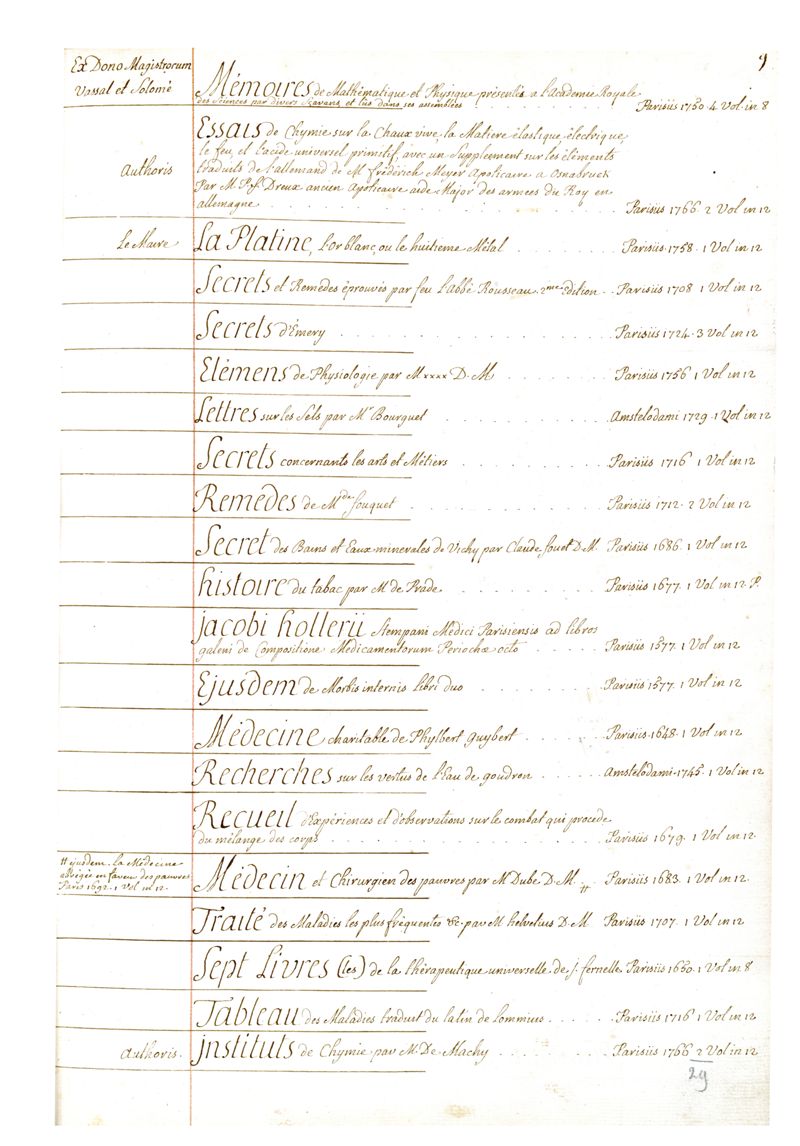 9
Ex Dono Magistrorum
Vassal et Solomé
Mémoires de Mathématique et Physique présentés a l'academie Royale
des Sciences par divers Sçavans, et lus dans ses assemblées Parisiis 1750. 4 Vol in 8
Essais de Chymie sur la Chaux vive, la Matiere élastique, électrique,
le feu, et l'acide universel primitif, avec un Supplement sur les éléments
Authoris
traduits de l'allemand de M. fréderich Meyer Apoticaire a Osnabruck
Par M. P. f. Dreux ancien Apoticaire aide Major des armées du Roy en
allemagne Parisiis 1766. 2 Vol in 12
Le Maire La Platine, l'or blanc, ou le huitieme Métal Parisiis 1758. 1 Vol in 12
Secrets et Remédes éprouvés par feu l'abbé Rousseau. 2me édition Parisiis 1708 1 Vol in 12
Secrets d'Emery Parisiis 1724. 3 Vol in 12
Elémens de Physiologie par M xxxx D. M Parisiis 1756 1 Vol in 12
Lettres sur les Sels par Mr Bourguet Amstelodami 1729. 1 Vol in 12
Secrets concernants les arts et Métiers Parisiis 1716 1 Vol in 12
Remédes de Mde fouquet Parisiis 1712. 2 Vol in 12
Secret des Bains et Eaux minerales de Vichy par Claude fouet D. M. Parisiis 1686. 1 Vol in 12
histoire du tabac par M de Prade Parisiis 1677. 1 Vol in 12. P.
jacobi hollerii Stempani Médici Parisiensis ad libros
galeni de Compositione Médicamentorum Periochæ octo Parisiis 1577. 1 Vol in 12
Ejusdem de Morbis internis libri duo Parisiis 1577. 1 Vol in 12
Médecine charitable de Phylbert guybert Parisiis 1648. 1 Vol in 12
Recherches sur les vertus de l'Eau de goudron Amstelodami 1745. 1 Vol in 12
Recueil d'Expériences et d'observations sur le combat qui procede
du mélange des corps Parisiis 1679. 1 Vol in 12
# ejusdem. la Médecine
abrégée en faveur des pauvres
Paris 1692. 1 Vol in 12.
Médecin et Chirurgien des pauvres par M Dubé D. M. # Parisiis 1683. 1 Vol in 12
Traité des Maladies les plus fréquentes &c. par M helvetius D. M. Parisiis 1707. 1 Vol in 12
Sept Livres (les) de la thérapeutique universelle de j. fernelle Parisiis 1650. 1 Vol in 8
Tableau des Maladies traduit du latin de Lommius Parisiis 1716 1 Vol in 12
Authoris. jnstituts de Chymie par M. De Machy Parisiis 1766 2 Vol in 12
29